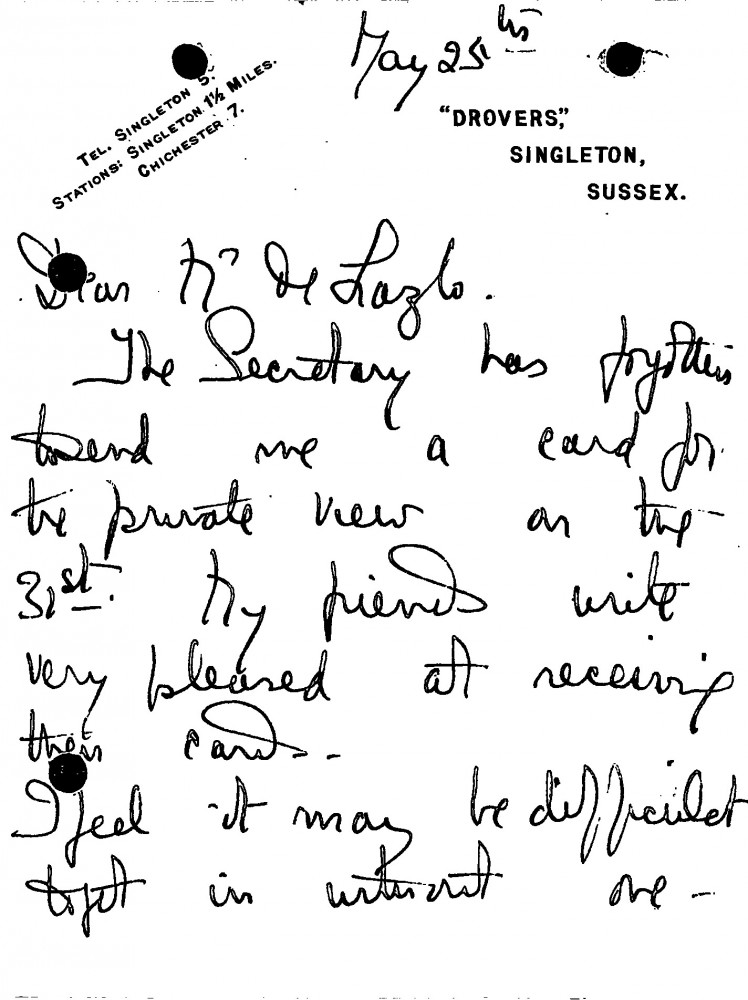 May 25th
TEL. SINGLETON 5.
STATIONS: SINGLETON 1½ MILES.
CHICHESTER 7.
"DROVERS",
SINGLETON,
SUSSEX.
Dear Mr De Lazlo.
The Secretary has forgotten
to send me a card for
the private view on the
31st. My friends write
very pleased at receiving
their cards -
I feel it may be difficult
to get in without one -